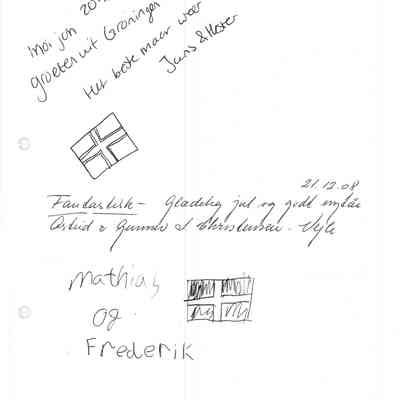 Moi jon 20
groeten uit Groningen
Het beste maar weer
Jans & Hester
21.12.08
Fantastisk - Glædelig jul og godt nytår
Astrid & Gunnar Christensen - Vejle
Mathias
og
Frederik